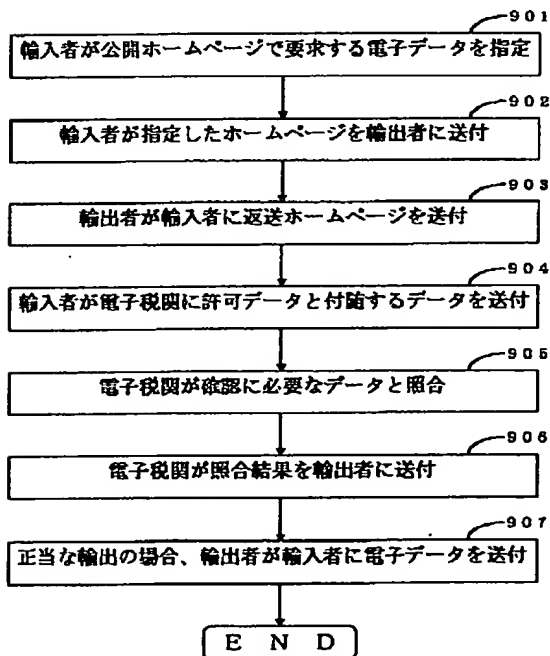 901
輸入者が公開ホームページで要求する電子データを指定
902
輸入者が指定したホームページを輸出者に送付
903
輸出者が輸入者に返送ホームページを送付
904
輸入者が電子税関に許可データと付随するデータを送付
905
電子税関が確認に必要なデータと照合
906
電子税関が照合結果を輸出者に送付
907
正当な輸出の場合、輸出者が輸入者に電子データを送付
E N D